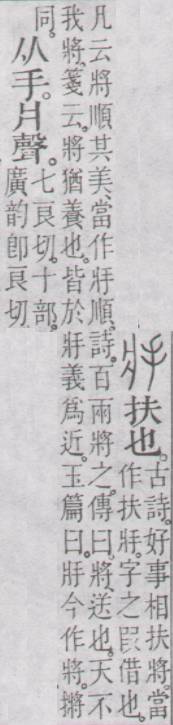 扶也。
古詩。好事相扶將。當
作扶𤕭。字之叚借也。
凡云將順其美當作𤕭順。詩。百兩將之。傳曰。將、送也。天不
我將。箋云。將猶養也。皆於𤕭義爲近。玉篇曰。𤕭今作將。摪
同。
从手。爿聲。
七良切。十部。
廣韵卽良切